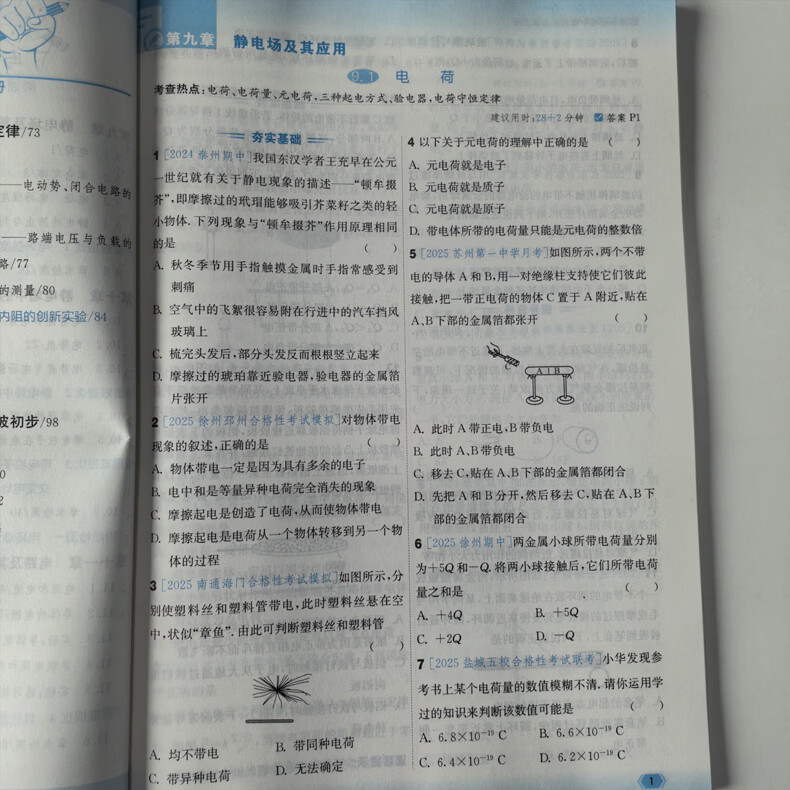 册
定律/73
——电动势、闭合电路的
——路端电压与负载的
路/77
的测量/80
内阻的创新实验/84
波初步/98
第九章 静电场及其应用
9.1 电荷
考查热点：电荷、电荷量、元电荷，三种起电方式、验电器，电荷守恒定律
建议用时：28+2分钟 答案P1
夯实基础
1 [2024泰州期中]我国东汉学者王充早在公元
一世纪就有关于静电现象的描述——“顿牟掇
芥”，即摩擦过的玳瑁能够吸引芥菜籽之类的轻
小物体．下列现象与“顿牟掇芥”作用原理相同
的是 （ ）
A. 秋冬季节用手指触摸金属时手指常感受到
刺痛
B. 空气中的飞絮很容易附在行进中的汽车挡风
玻璃上
C. 梳完头发后，部分头发反而根根竖立起来
D. 摩擦过的琥珀靠近验电器，验电器的金属箔
片张开
2 [2025徐州邳州合格性考试模拟]对物体带电
现象的叙述，正确的是 （ ）
A. 物体带电一定是因为具有多余的电子
B. 电中和是等量异种电荷完全消失的现象
C. 摩擦起电是创造了电荷，从而使物体带电
D. 摩擦起电是电荷从一个物体转移到另一个物
体的过程
3 [2025南通海门合格性考试模拟]如图所示，分
别使塑料丝和塑料管带电，此时塑料丝悬在空
中，状似“章鱼”．由此可判断塑料丝和塑料管
（ ）
A. 均不带电 B. 带同种电荷
C. 带异种电荷 D. 无法确定
4 以下关于元电荷的理解中正确的是 （ ）
A. 元电荷就是电子
B. 元电荷就是质子
C. 元电荷就是原子
D. 带电体所带的电荷量只能是元电荷的整数倍
5 [2025苏州第一中学月考]如图所示，两个不带
电的导体A和B，用一对绝缘柱支持使它们彼此
接触，把一带正电荷的物体C置于A附近，贴在
A、B下部的金属箔都张开 （ ）
C
A B
A. 此时A带正电，B带负电
B. 此时A、B带负电
C. 移去C，贴在A、B下部的金属箔都闭合
D. 先把A和B分开，然后移去C，贴在A、B下
部的金属箔都闭合
6 [2025徐州期中]两金属小球所带电荷量分别
为+5Q和-Q，将两小球接触后，它们所带电荷
量之和是 （ ）
A. +4Q B. +5Q
C. +2Q D. -Q
7 [2025盐城五校合格性考试联考]小华发现参
考书上某个电荷量的数值模糊不清，请你运用学
过的知识来判断该数值可能是 （ ）
A. 6.8×10⁻¹⁹ C B. 6.6×10⁻¹⁹ C
C. 6.4×10⁻¹⁹ C D. 6.2×10⁻¹⁹ C
1